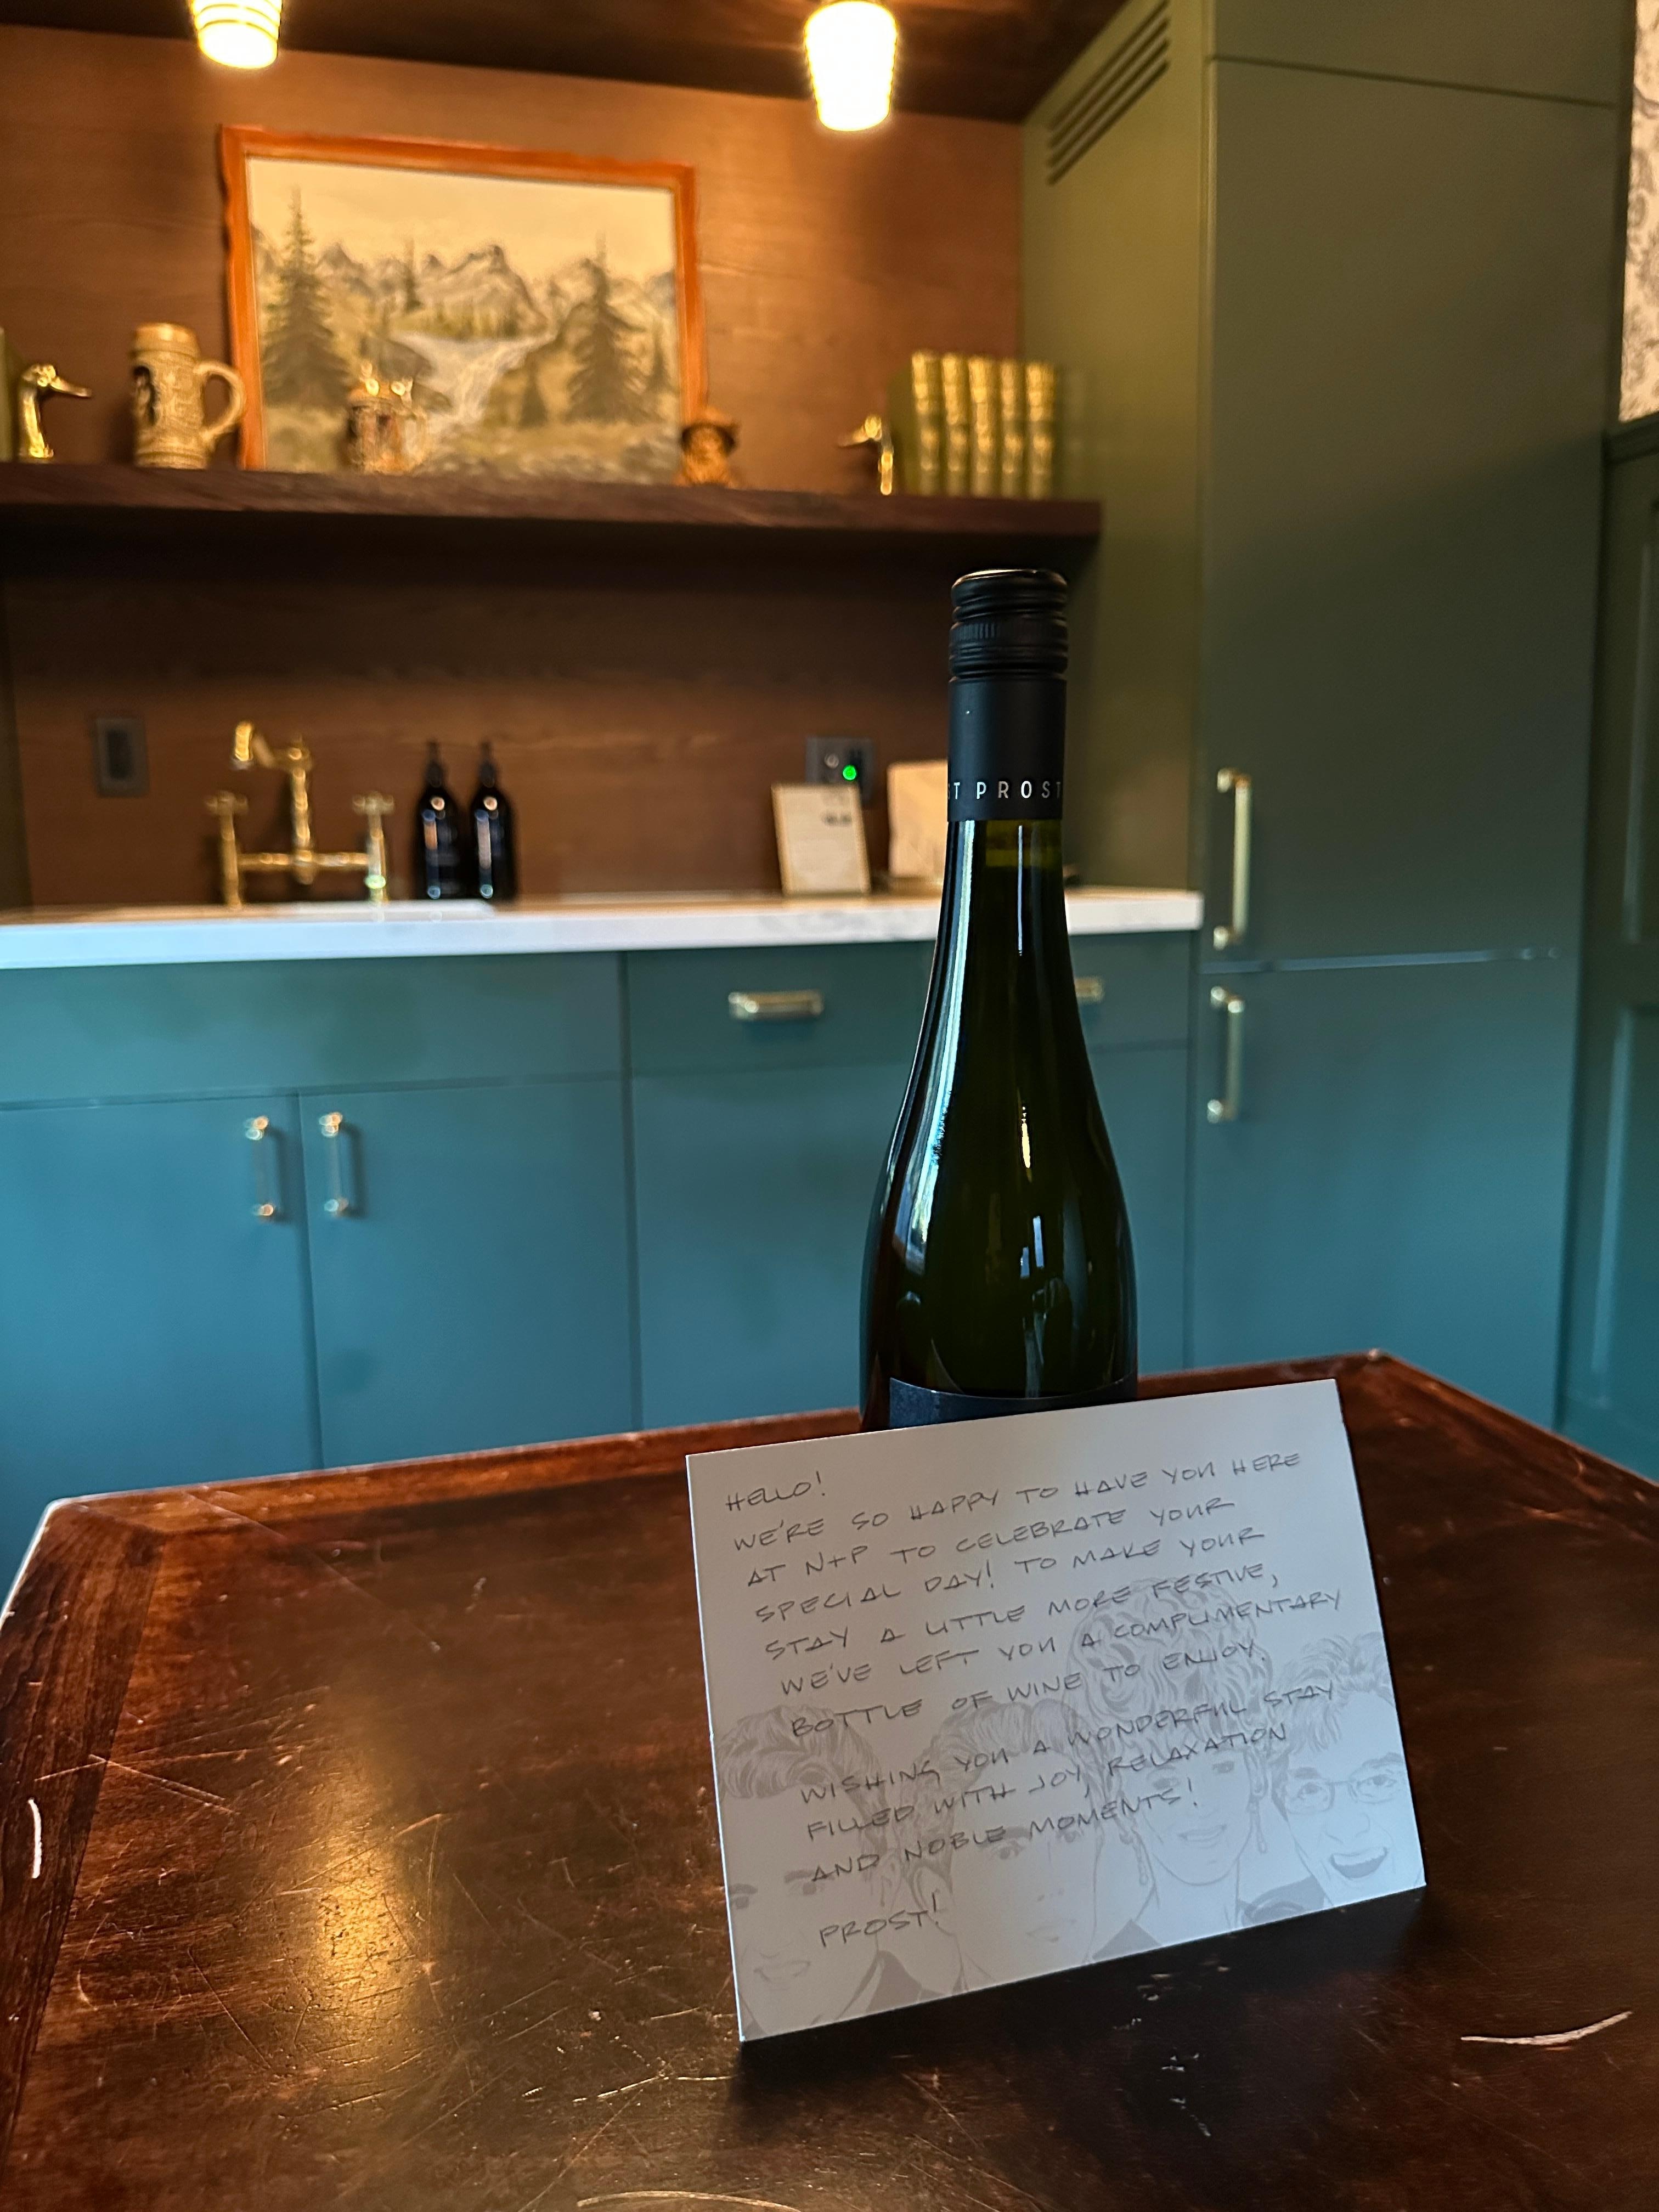 ET PROST
HELLO!
WE'RE SO HAPPY TO HAVE YOU HERE
AT N+P TO CELEBRATE YOUR
SPECIAL DAY! TO MAKE YOUR
STAY A LITTLE MORE FESTIVE,
WE'VE LEFT YOU A COMPLIMENTARY
BOTTLE OF WINE TO ENJOY.
WISHING YOU A WONDERFUL STAY
FILLED WITH JOY, RELAXATION
AND NOBLE MOMENTS!
PROST!